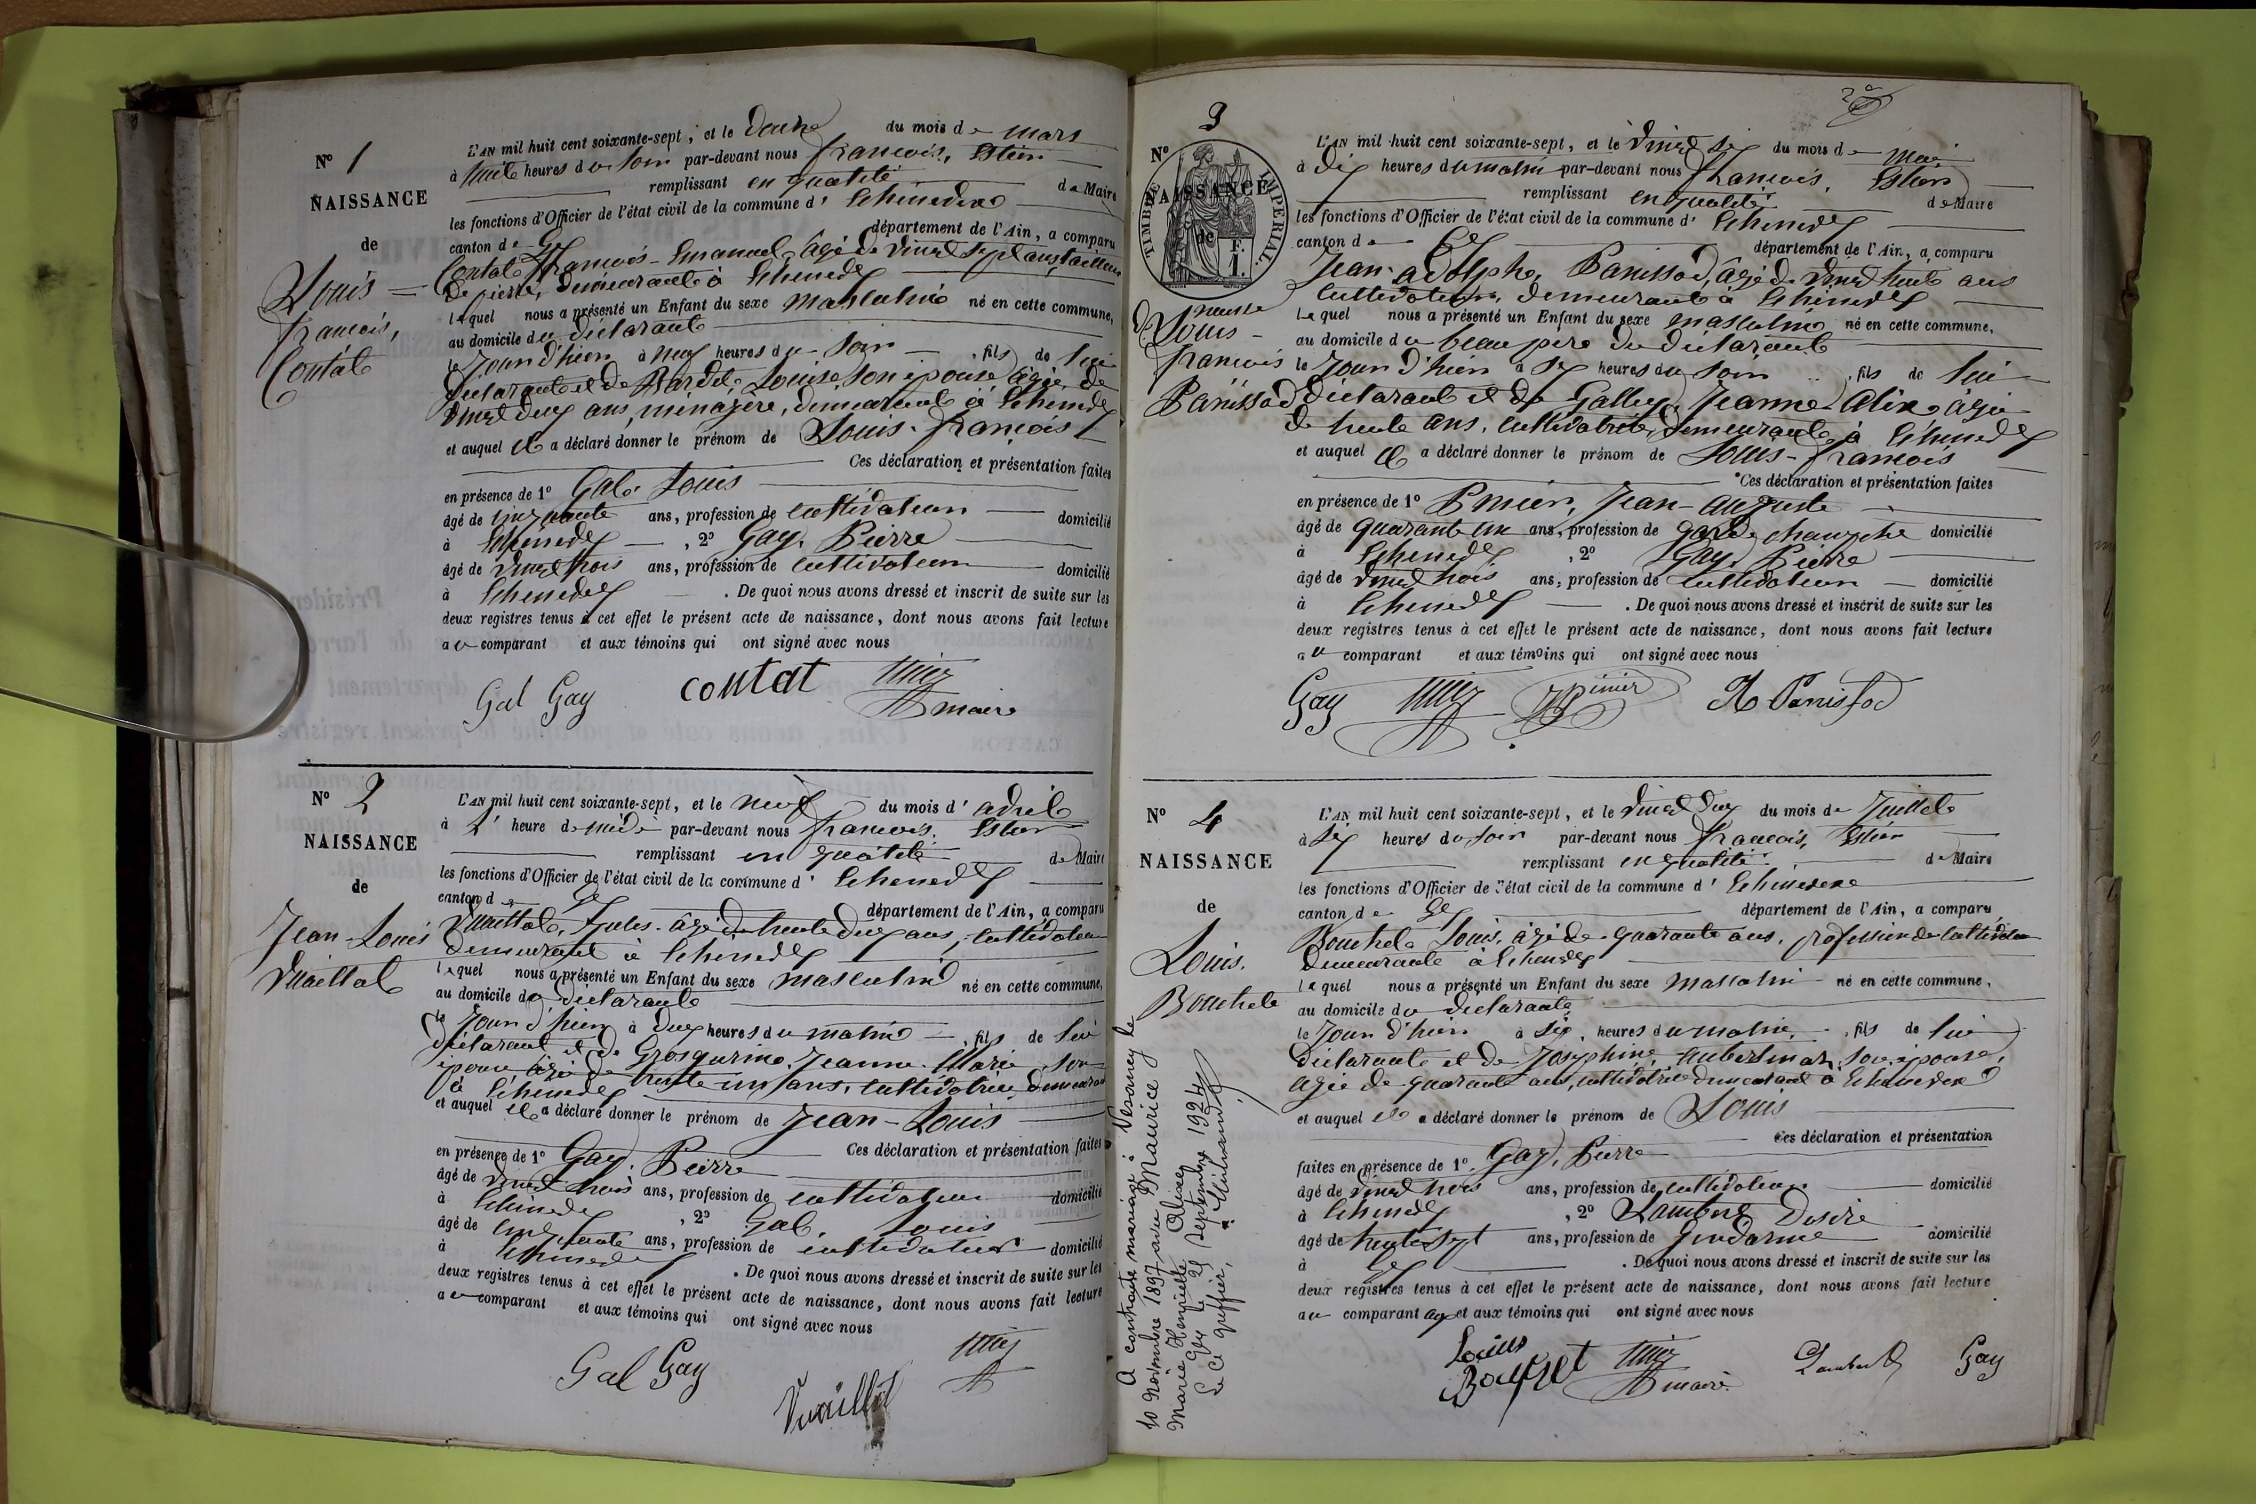 N° 1
NAISSANCE
de
Louis
françois,
Contat
L'AN mil huit cent soixante-sept, et le douze du mois de mars
à huit heures du soir par-devant nous françois,
remplissant en qualité de Maire
les fonctions d'Officier de l'état civil de la commune d'
canton de Gex département de l'Ain, a comparu
Contat françois-Emanuel, âgé de vingt sept ans, tailleur
de pierre, demeurant à Echenevex
lequel nous a présenté un Enfant du sexe masculin né en cette commune,
au domicile du déclarant
le jour d'hier à neuf heures du soir, fils de lui
déclarant et de Louise, son épouse âgée de
vingt deux ans, ménagère, demeurant à Echenevex
et auquel il a déclaré donner le prénom de Louis-françois
Ces déclaration et présentation faites
en présence de 1° Gal Louis
âgé de cinquante ans, profession de cultivateur domicilié
à Echenevex, 2° Gay, Pierre
âgé de vingt trois ans, profession de cultivateur domicilié
à Echenevex. De quoi nous avons dressé et inscrit de suite sur les
deux registres tenus à cet effet le présent acte de naissance, dont nous avons fait lecture
au comparant et aux témoins qui ont signé avec nous
Gal Gay contat maire
N° 2
NAISSANCE
de
Jean-Louis
Vuaillat
L'AN mil huit cent soixante-sept, et le neuf du mois d'avril
à heure de midi par-devant nous françois,
remplissant en qualité de Maire
les fonctions d'Officier de l'état civil de la commune d'Echenevex
canton de Gex département de l'Ain, a comparu
Vuaillat, Jules, âgé de trente deux ans, cultivateur
demeurant à Echenevex
lequel nous a présenté un Enfant du sexe masculin né en cette commune,
au domicile du déclarant
le jour d'hier à deux heures du matin, fils de lui
déclarant et de Grosgurin, Jeanne Marie, son
épouse âgée de trente un ans, cultivatrice, demeurant
à Echenevex
et auquel il a déclaré donner le prénom de Jean-Louis
Ces déclaration et présentation faites
en présence de 1° Gay, Pierre
âgé de vingt trois ans, profession de cultivateur domicilié
à Echenevex, 2° Gal, Louis
âgé de cinquante ans, profession de cultivateur domicilié
à Echenevex. De quoi nous avons dressé et inscrit de suite sur les
deux registres tenus à cet effet le présent acte de naissance, dont nous avons fait lecture
au comparant et aux témoins qui ont signé avec nous
Gal Gay
Vuaillat
N° 3
TIMBRE IMPERIAL.
NAISSANCE
de
Louis-
françois
Panissod
L'AN mil huit cent soixante-sept, et le vingt six du mois de mai
à dix heures du matin par-devant nous françois,
remplissant en qualité de Maire
les fonctions d'Officier de l'état civil de la commune d'Echenevex
canton de Gex département de l'Ain, a comparu
Jean-adolphe, Panissod, âgé de vingt huit ans
cultivateur, demeurant à Echenevex
lequel nous a présenté un Enfant du sexe masculin né en cette commune,
au domicile du beau père du déclarant
le jour d'hier à six heures du soir, fils de lui
déclarant et de Jeanne âgée
de trente ans, cultivatrice, demeurant à Echenevex
et auquel il a déclaré donner le prénom de Louis-françois
Ces déclaration et présentation faites
en présence de 1° Pinier, Jean-auguste
âgé de quarante un ans, profession de garde champêtre domicilié
à Echenevex, 2° Gay, Pierre
âgé de vingt trois ans, profession de cultivateur domicilié
à Echenevex. De quoi nous avons dressé et inscrit de suite sur les
deux registres tenus à cet effet le présent acte de naissance, dont nous avons fait lecture
au comparant et aux témoins qui ont signé avec nous
Gay Pinier Panissod
N° 4
NAISSANCE
de
Louis.
L'AN mil huit cent soixante-sept, et le vingt deux du mois de Juillet
à six heures du soir par-devant nous françois,
remplissant en qualité de Maire
les fonctions d'Officier de l'état civil de la commune d'Echenevex
canton de Gex département de l'Ain, a comparu
Louis, âgé de quarante ans, profession de cultivateur
demeurant à Echenevex
lequel nous a présenté un Enfant du sexe masculin né en cette commune,
au domicile du déclarant
le jour d'hier à six heures du matin, fils de lui
déclarant et de Joséphine, son épouse,
âgée de quarante ans, cultivatrice demeurant à Echenevex
et auquel il a déclaré donner le prénom de Louis
Ces déclaration et présentation
faites en présence de 1° Gay, Pierre
âgé de vingt trois ans, profession de cultivateur domicilié
à Echenevex, 2° Lambert Désiré
âgé de trente sept ans, profession de Gendarme domicilié
à Gex. De quoi nous avons dressé et inscrit de suite sur les
deux registres tenus à cet effet le présent acte de naissance, dont nous avons fait lecture
au comparant et aux témoins qui ont signé avec nous
Louis maire Lambert Gay
A contracté mariage à Vesancy le
10 Novembre 1897 avec Maurice
Marie Henriette
Gex le 29 Septembre 1924
Le Greffier,